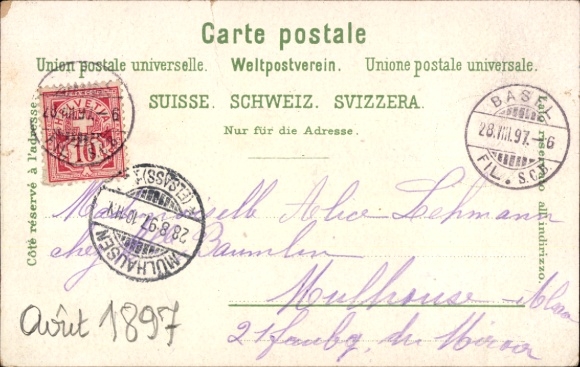 Carte postale
Union postale universelle. Weltpostverein. Unione postale universale.
SUISSE. SCHWEIZ. SVIZZERA.
Nur für die Adresse.
Côté réservé à l'adresse.
Lato riservato all'indirizzo.
HELVETIA
10
BASEL
28.VIII.97. 6
FIL. S.C.B.
MÜLHAUSEN
(ELSASS)
28.8.97.
Mademoiselle Alice Lehmann
chez Baumlin
Mulhouse
21 faubg. du Miroir
Août 1897